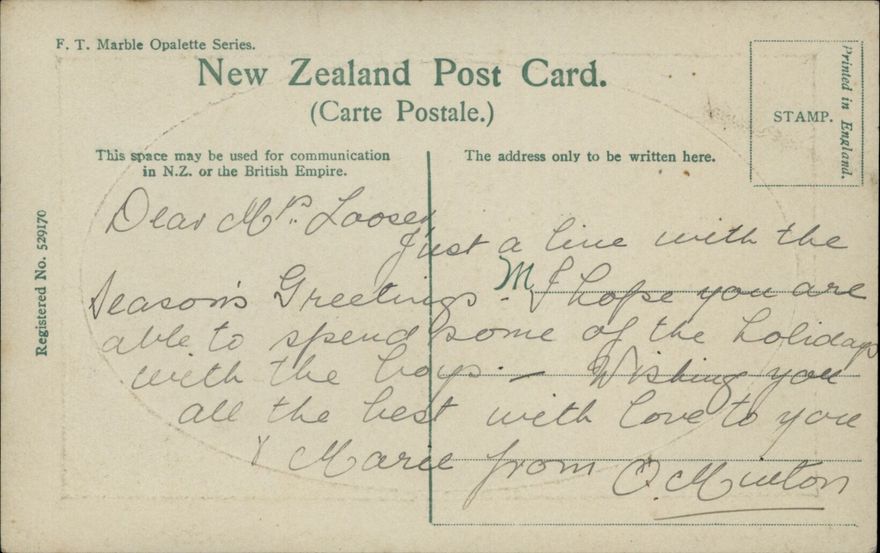 F. T. Marble Opalette Series.
New Zealand Post Card.
(Carte Postale.)
Printed in England.
STAMP.
This space may be used for communication
in N.Z. or the British Empire.
The address only to be written here.
Registered No. 529170
Dear Mrs. Looser
Just a line with the
Season's Greetings - I hope you are
able to spend some of the holidays
with the boys. — Wishing you
all the best with love to you
& Marie from O. Minton
M